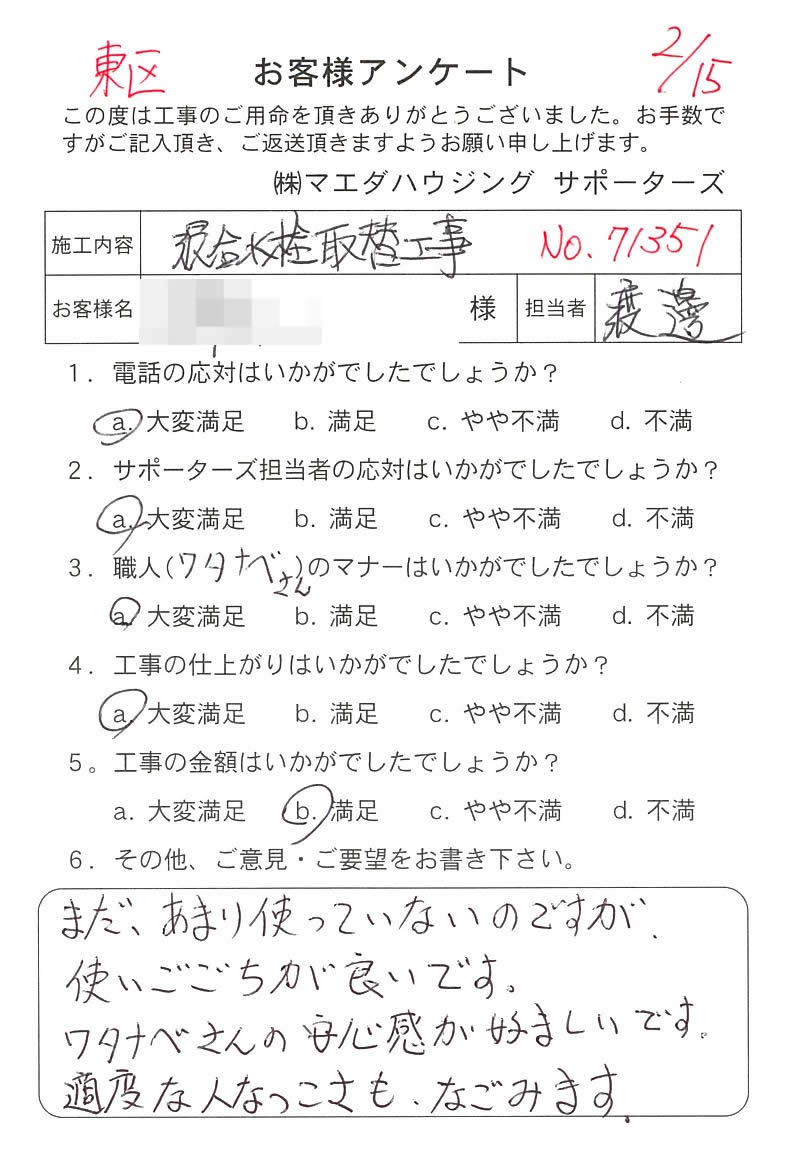 東区
お客様アンケート
2/15
この度は工事のご用命を頂きありがとうございました。お手数で
すがご記入頂き、ご返送頂きますようお願い申し上げます。
㈱マエダハウジング サポーターズ
施工内容 混合水栓取替工事 No.71351
お客様名 様 担当者 渡邊
1. 電話の応対はいかがでしたでしょうか？
a. 大変満足 b. 満足 c. やや不満 d. 不満
2. サポーターズ担当者の応対はいかがでしたでしょうか？
a. 大変満足 b. 満足 c. やや不満 d. 不満
3. 職人(ワタナベさん)のマナーはいかがでしたでしょうか？
a. 大変満足 b. 満足 c. やや不満 d. 不満
4. 工事の仕上がりはいかがでしたでしょうか？
a. 大変満足 b. 満足 c. やや不満 d. 不満
5。工事の金額はいかがでしたでしょうか？
a. 大変満足 b. 満足 c. やや不満 d. 不満
6. その他、ご意見・ご要望をお書き下さい。
まだ、あまり使っていないのですが、
使いごごちが良いです。
ワタナベさんの安心感が好ましいです。
適度な人なつこさも、なごみます。